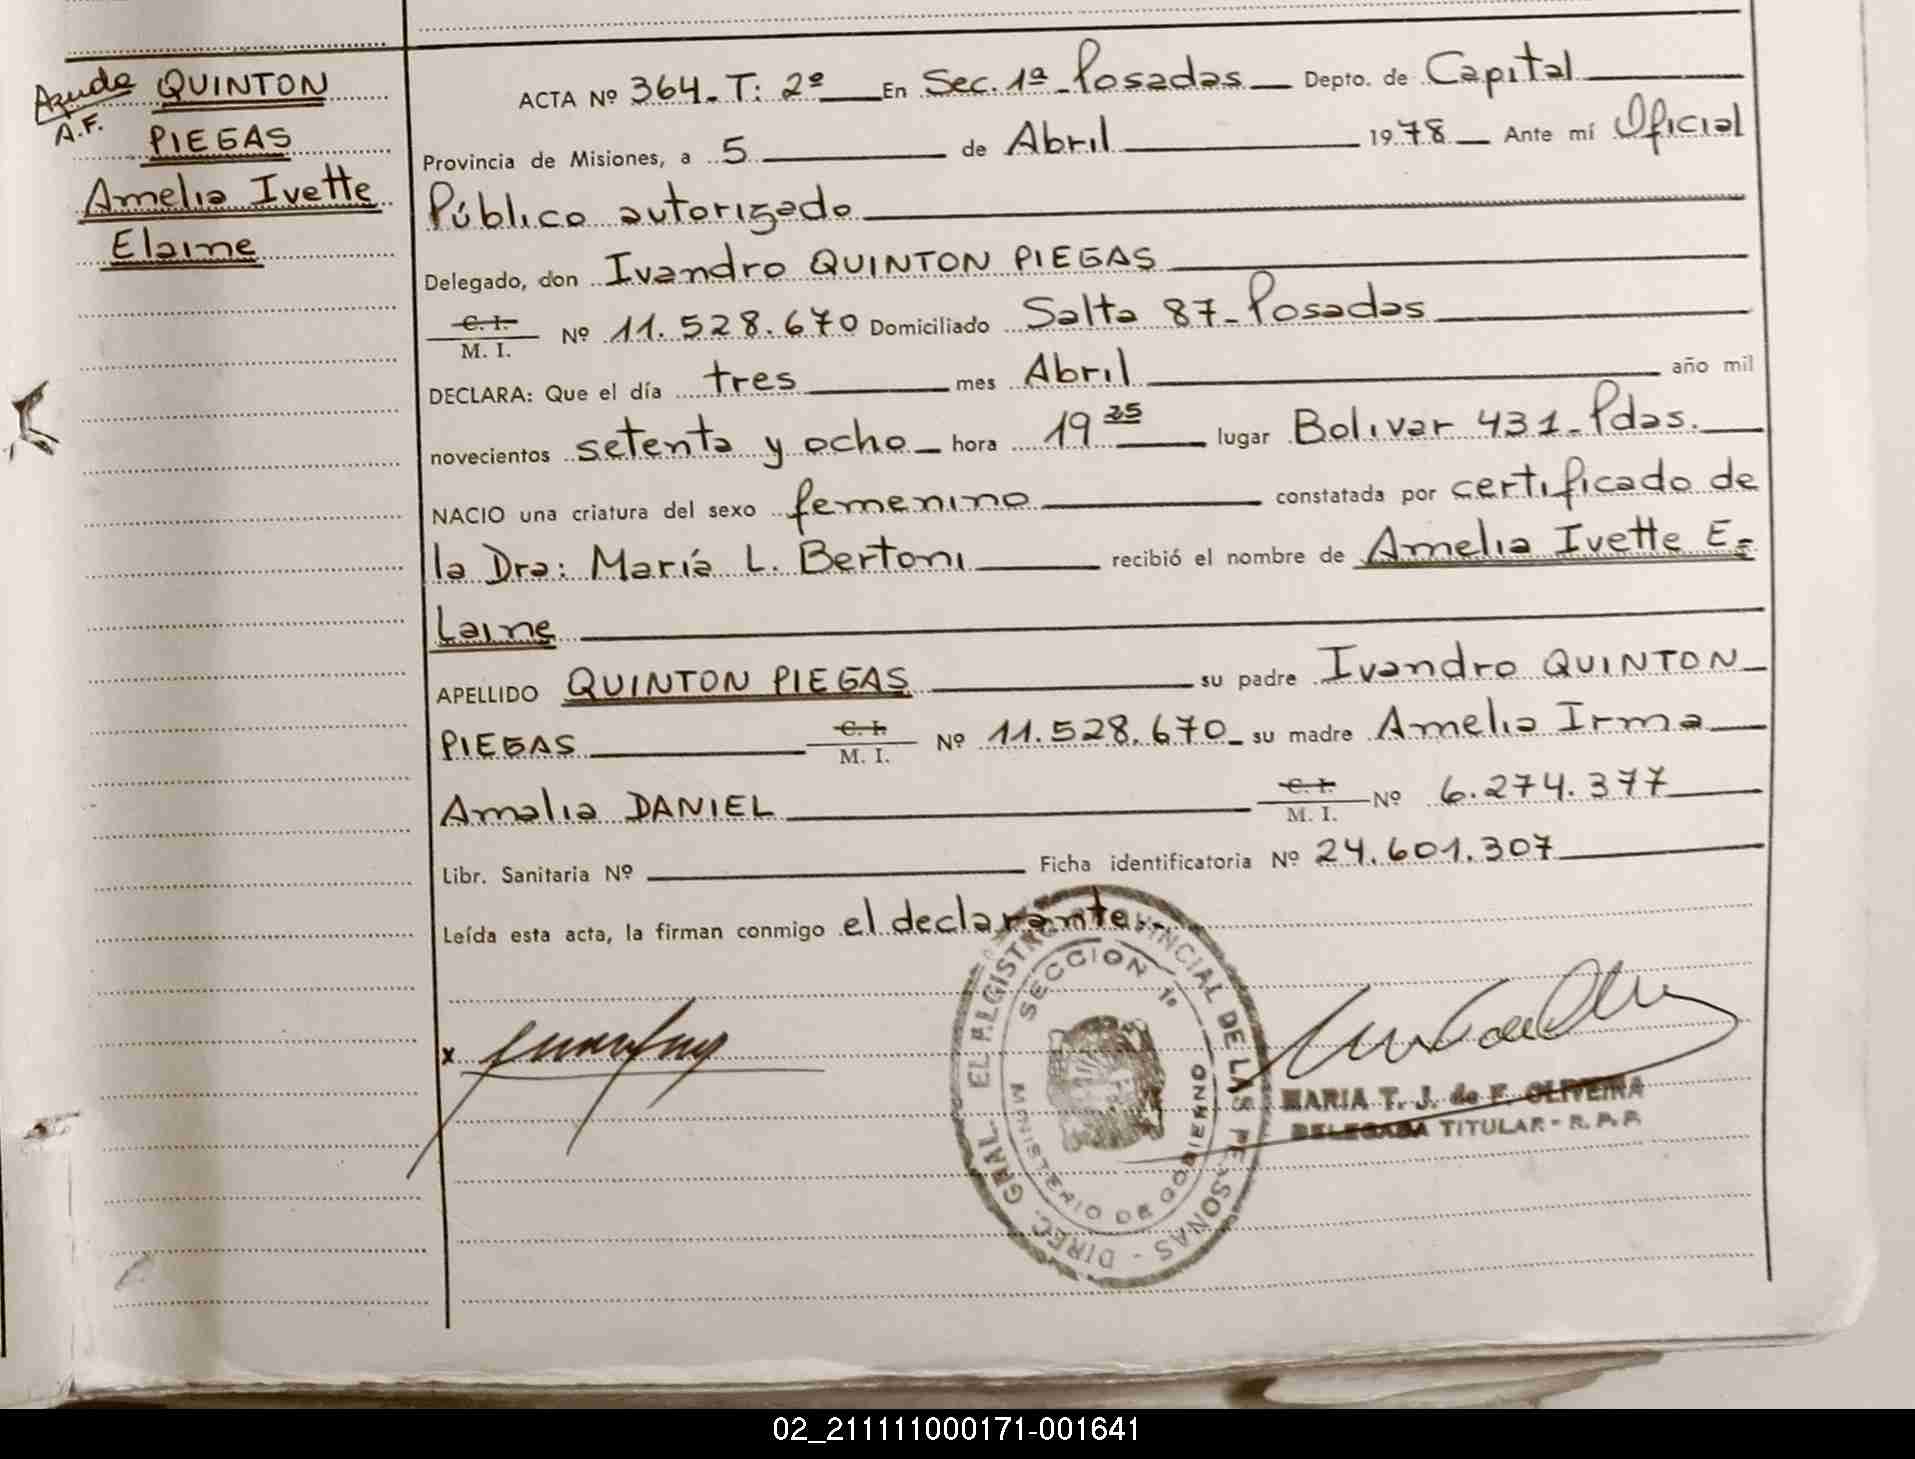 Ayuda
A.F.
QUINTON
PIEGAS
Amelia Ivette
Elaine
ACTA Nº 364. T: 2º En Sec. 1ª Posadas Depto. de Capital
Provincia de Misiones, a 5 de Abril 1978 Ante mí Oficial
Público autorizado
Delegado, don Ivandro QUINTON PIEGAS
C. I. M. I. Nº 11.528.670 Domiciliado Salta 87 - Posadas
DECLARA: Que el día tres mes Abril año mil
novecientos setenta y ocho hora 19 25 lugar Bolivar 431 - Pdas.
NACIO una criatura del sexo femenino constatada por certificado de
la Dra: María L. Bertoni recibió el nombre de Amelia Ivette E=
Laine
APELLIDO QUINTON PIEGAS su padre Ivandro QUINTON
PIEGAS C. I. M. I. Nº 11.528.670 su madre Amelia Irma
Amalia DANIEL C. I. M. I. Nº 6.274.377
Libr. Sanitaria Nº Ficha identificatoria Nº 24.601.307
Leída esta acta, la firman conmigo el declarante.-
x
SECCION 1ª
MINISTERIO DE GOBIERNO
MARIA T. J. de F. OLIVEIRA
DELEGADA TITULAR - R. P. P.
02_211111000171-001641